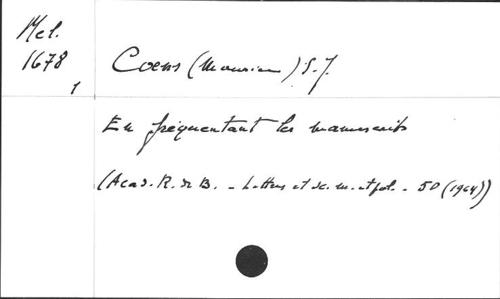 Mel.
1678
1
Coens (Maurice) S.J.
En fréquentant les manuscrits
(Acad. R. de B. - Lettres et sc. m. et pol. - 50 (1964))